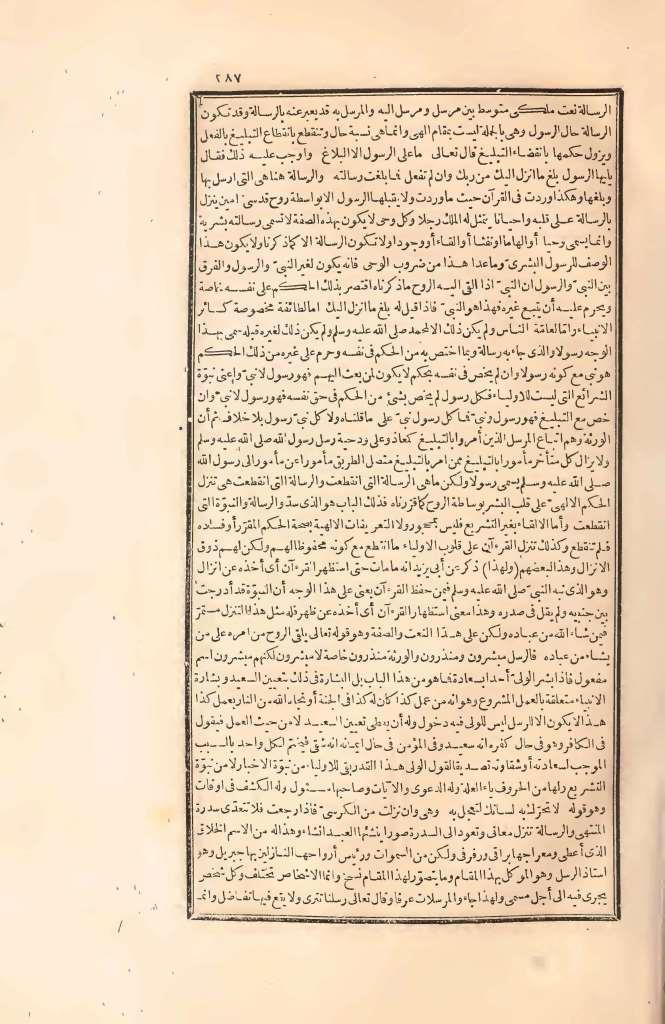 ٢٨٧
الرسالة نعت ملكى متوسط بين مرسل ومرسل اليه والمرسل به قد يعبر عنه بالرسالة وقد تكون
الرسالة حال الرسول وهى بالجملة ليست بمقام الهى وانما هى نسبة حال وتنقطع بانقطاع التبليغ بالفعل
ويزول حكمها بانقضاء التبليغ قال تعالى ما على الرسول الا البلاغ واوجب عليه ذلك فقال
يايها الرسول بلغ ما انزل اليك من ربك وان لم تفعل فما بلغت رسالته والرسالة هنا هى التى ارسل بها
وبلغها وهكذا وردت فى القرآن حيث ما وردت ولا يقبلها الرسول الا بواسطة روح قدسى امين ينزل
بالرسالة على قلبه واحيانا يتمثل له الملك رجلا وكل وحى لا يكون بهذه الصفة لا تسمى رسالة بشرية
وانما يسمى وحيا أو الهاما أو نفثا أو القاء أو وجودا ولا تكون الرسالة الا كما ذكرنا ولا يكون هذا
الوصف للرسول البشرى وما عدا هذا من ضروب الوحى فانه يكون لغير النبىّ والرسول والفرق
بين النبىّ والرسول ان النبىّ اذا القى اليه الروح ما ذكرناه اقتصر بذلك الحكم على نفسه خاصة
ويحرم عليه أن يتبع غيره فهذا هو النبىّ فاذا قيل له بلغ ما انزل اليك اما لطائفة مخصوصة كسائر
الانبياء واما لعامّة الناس ولم يكن ذلك الا لمحمد صلى الله عليه وسلم ولم يكن ذلك لغيره قبله سمى بهذا
الوجه رسولا والذى جاء به رسالة وبما اختص به من الحكم فى نفسه وحرم على غيره من ذلك الحكم
هو نبى مع كونه رسولا وان لم يخص فى نفسه بحكم لا يكون لمن بعث اليهم فهو رسول لا نبىّ وأعنى نبوّة
الشرائع التى ليست للاولياء فكل رسول لم يخص بشئ من الحكم فى حق نفسه فهو رسول لا نبىّ وان
خص مع التبليغ فهو رسول ونبىّ فما كل رسول نبىّ على ما قلناه ولا كل نبىّ رسول بلا خلاف ثم أن
الورثة وهم اتباع المرسل الذين أمروا بالتبليغ كمعاذ وعلى ودحية رسل رسول الله صلى الله عليه وسلم
ولا يزال كل متأخر مأمورا بالتبليغ ممن امر بالتبليغ متصل الطريق مأمورا عن مأمور الى رسول الله
صلى الله عليه وسلم يسمى رسولا ولكن ما هى الرسالة التى انقطعت والرسالة التى انقطعت هى تنزل
الحكم الالهىّ على قلب البشر بوساطة الروح كما قررناه فذلك الباب هو الذى سدّ والرسالة والنبوّة التى
انقطعت وأما الالقاء بغير التشريع فليس بمحجور ولا التعريفات الالهية بصحة الحكم المقرر أو فساده
فلم تنقطع وكذلك تنزل القرءآن على قلوب الاولياء ما انقطع مع كونه محفوظا لهم ولكن لهم ذوق
الانزال وهذا لبعضهم (ولهذا) ذكر عن أبى يزيد انه ما مات حتى استظهر القرءآن أى أخذه عن انزال
وهو الذى نبه النبىّ صلى الله عليه وسلم فيمن حفظ القرءآن يعنى على هذا الوجه أن النبوّة قد أدرجت
بين جنبيه ولم يقل فى صدره وهذا معنى استظهار القرءآن أى أخذه عن ظهر فله مثل هذا التنزل مستمرّ
فيمن شاء الله من عباده ولكن على هذا النعت والصفة وهو قوله تعالى يلقى الروح من امره على من
يشاء من عباده فالرسل مبشرون ومنذرون والورثة منذرون خاصة لا مبشرون لكنهم مبشرون اسم
مفعول فاذا بشر الولىّ أحدا بسعادة فما هو من هذا الباب بل البشارة فى ذلك بتعيين السعيد وبشارة
الانبياء متعلقة بالعمل المشروع وهو انه من عمل كذا كان له كذا فى الجنة أو نجاه الله من النار بعمل كذا
هذا لا يكون الا للرسل ليس للولى فيه دخول وله أن يعطى تعيين السعيد لا من حيث العمل فيقول
فى الكافر وهو فى حال كفره انه سعيد وفى المؤمن فى حال ايمانه انه شقى فيختم لكل واحد بالسبب
الموجب لسعادته أو شقاوته تصديقا لقول الولى هذا القدر بقى للاولياء من نبوّة الاخبار لا من نبوّة
التشريع ولها من الحروف ياء العلة وله الدعوى والآيات وصاحبها مسئول وله الكشف فى اوقات
وهو قوله لا تحرّك به لسانك لتعجل به وهى وان نزلت من الكرسىّ فاذا رجعت فلا تتعدّى سدرة
المنتهى والرسالة تنزل معانى وتعود الى السدرة صورا ينشئها العبد انشاء وهذا له من الاسم الخلاق
الذى أعطى ومعراجها براقى ورفرفى ولكن من السموات ورئيس أرواحها النازلين بها جبريل وهو
استاذ الرسل وهو الموكل بهذا المقام وما يتصوّر لهذا المقام نسخ وانما الاشخاص تختلف وكل شخص
يجرى فيه الى أجل مسمى ولهذا جاء والمرسلات عرفا وقال تعالى رسلنا تترى ولا يقع فيها تفاضل وانما